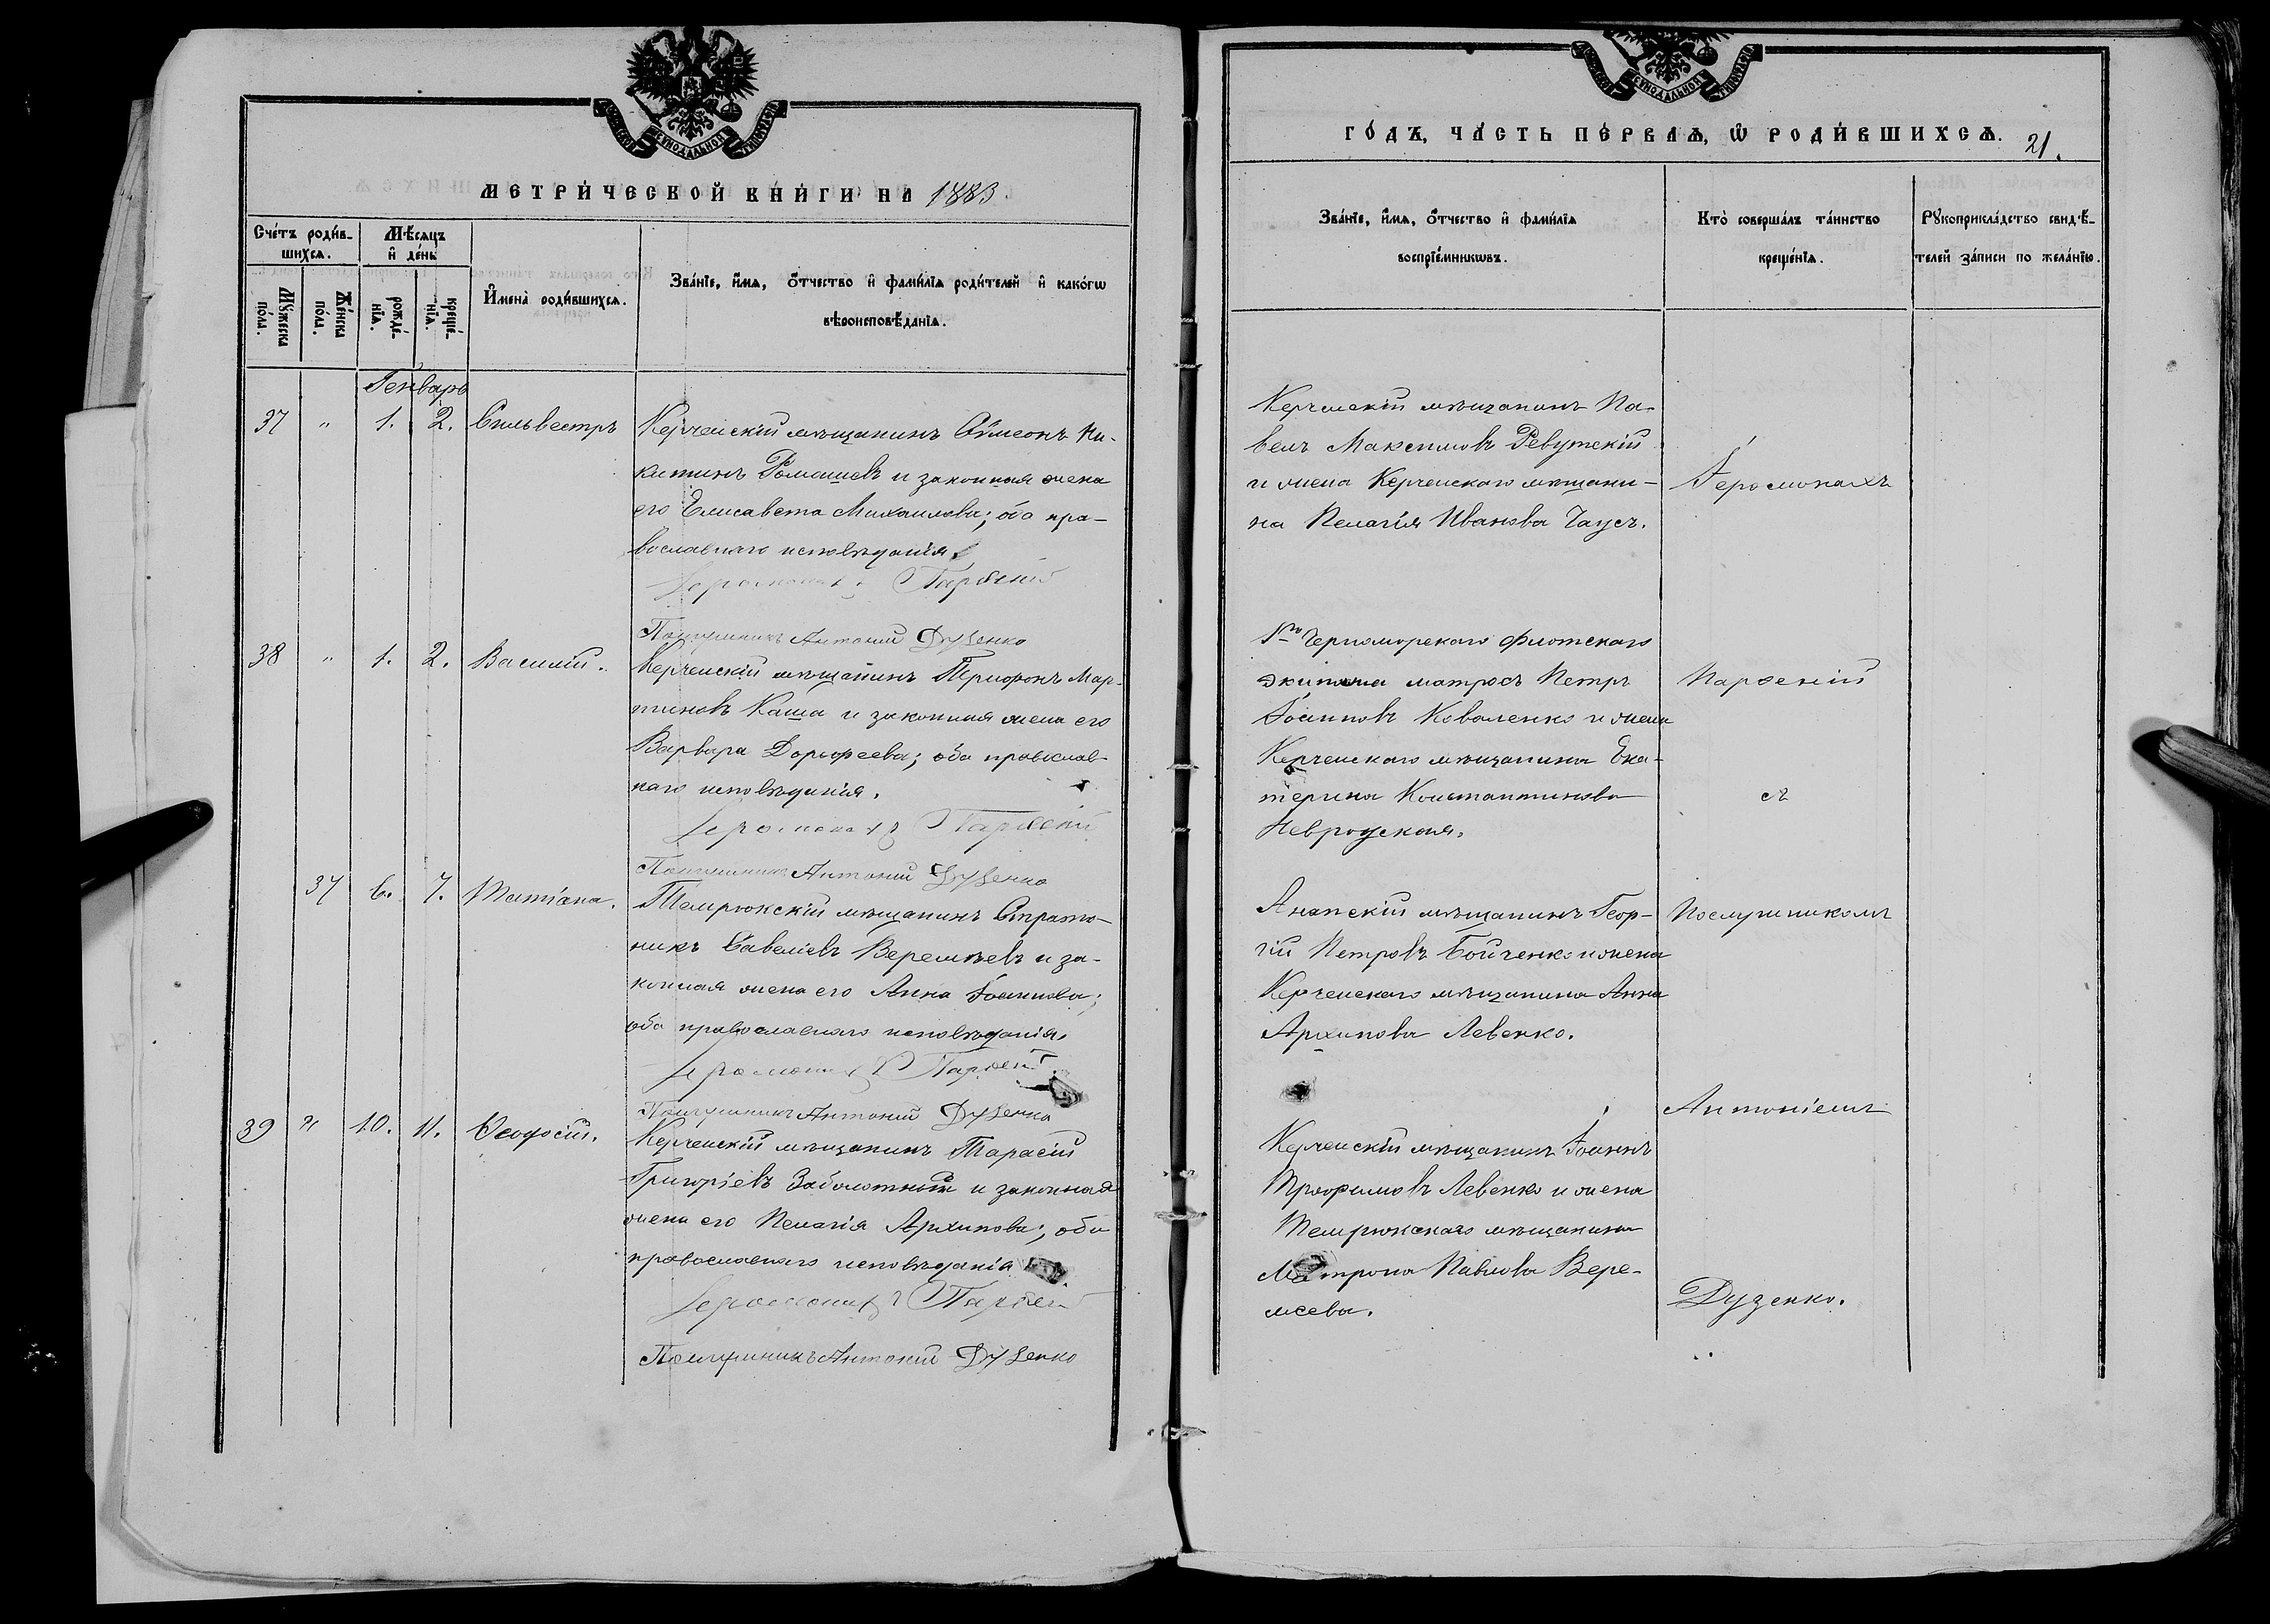 СѴНОДАЛЬНОЙ
МЕТРИ́ЧЕСКОЙ КНИ́ГИ НА 1883
Сче́тъ роди́в-
шихся.
Мѣ́сяцъ
и҆ де́нь
Мꙋ́жеска
по́ла.
Же́нска
по́ла.
рожде́-
нїѧ.
креще́-
нїѧ.
И҆мена̀ роди́вшихсѧ.
Зва́нїе, и҆́мѧ, ѻ҆́тчество и҆ фами́лїѧ роди́телей и҆ како́гѡ
вѣроисповѣ́данїѧ.
Генварь
37 " 1. 2. Сильвестръ
Керченскій мѣщанинъ Сѵмеонъ Ни-
китинъ Ромашевъ и законная жена
его Елисавета Михаилова; оба пра-
вославнаго исповѣданія.
Іеромонахъ Парѳеній
Послушникъ Антоній Дузенко
38 " 1. 2. Василій.
Керченскій мѣщанинъ Трифонъ Мар-
тиновъ Каша и законная жена его
Варвара Дорофеева; оба православ-
наго исповѣданія.
Іеромонахъ Парѳеній
Послушникъ Антоній Дузенко
37 6. 7. Татіана.
Темрюкскій мѣщанинъ Страто-
никъ Савеліевъ Веремѣевъ и за-
конная жена его Анна Іоаннова;
оба православнаго исповѣданія.
Іеромонахъ Парѳеній
Послушникъ Антоній Дузенко
39 " 10. 11. Ѳеодосій.
Керченскій мѣщанинъ Тарасій
Григоріевъ Заболотный и законная
жена его Пелагія Архипова; оба
православнаго исповѣданія
Іеромонахъ Парѳеній
Послушникъ Антоній Дузенко
СѴНОДАЛЬНОЙ
ГО́ДЪ, ЧА́СТЬ ПЕ́РВАѦ, Ѡ҆ РОДИ́ВШИХСѦ. 21.
Зва́нїе, и҆́мѧ, ѻ҆́тчество и҆ фами́лїѧ
воспрїе́мникѡвъ.
Кто̀ соверша́лъ та́инство
креще́нїѧ.
Рꙋкоприкла́дство свидѣ́-
телей за́писи по жела́нїю.
Керченскій мѣщанинъ Па-
велъ Максимовъ Ревутскій
и жена Керченскаго мѣщани-
на Пелагія Иванова Гаусъ.
Іеромонахъ
1го Черноморскаго флотскаго
экипажа матросъ Петръ
Іоанновъ Коваленко и жена
Керченскаго мѣщанина Ека-
терина Константинова
Невродская.
Парѳеній
съ
Анапскій мѣщанинъ Геор-
гій Петровъ Бойченко и жена
Керченскаго мѣщанина Анна
Архипова Левенко.
Послушникомъ
Антоніемъ
Керченскій мѣщанинъ Іоаннъ
Трофимовъ Левенко и жена
Темрюкскаго мѣщанина
Матрона Павлова Вере-
мѣева.
Дузенко.